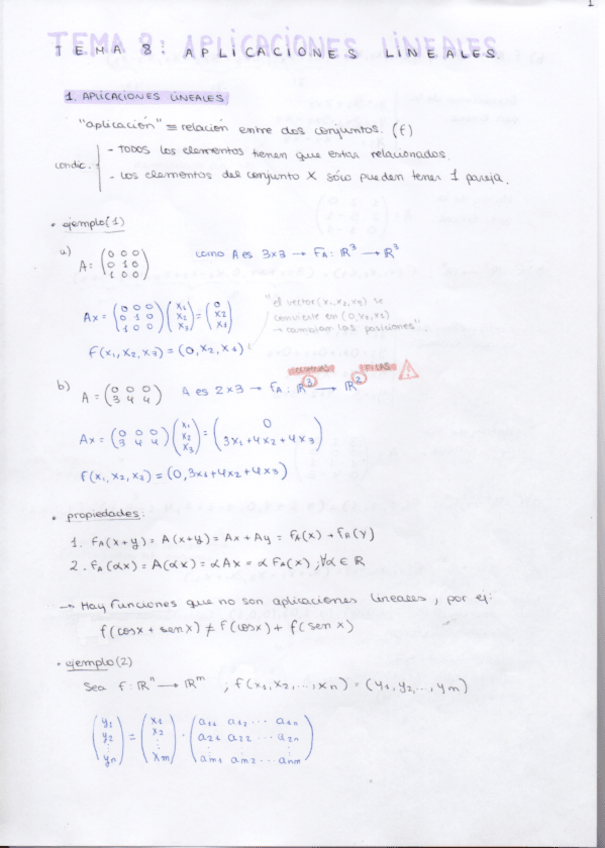 1
TEMA 8: APLICACIONES LINEALES
1. APLICACIONES LINEALES
"aplicación" ≡ relación entre dos conjuntos. (f)
condic. - TODOS los elementos tienen que estar relacionados.
- Los elementos del conjunto X sólo pueden tener 1 pareja.
• ejemplo(1)
a) A = (0 0 0 / 0 1 0 / 1 0 0) como A es 3x3 → F_A: ℝ³ → ℝ³
Ax = (0 0 0 / 0 1 0 / 1 0 0)(x₁ / x₂ / x₃) = (0 / x₂ / x₁)
"el vector (x₁,x₂,x₃) se
convierte en (0,x₂,x₁)
→ cambiam las posiciones".
f(x₁,x₂,x₃) = (0,x₂,x₁)
columnas filas
b) A = (0 0 0 / 3 4 4) A es 2x3 → f_A: ℝ³ → ℝ² !
Ax = (0 0 0 / 3 4 4)(x₁ / x₂ / x₃) = (0 / 3x₁+4x₂+4x₃)
f(x₁,x₂,x₃) = (0,3x₁+4x₂+4x₃)
• propiedades:
1. f_A(x+y) = A(x+y) = Ax + Ay = f_A(x) + f_A(y)
2. f_A(αx) = A(αx) = αAx = α f_A(x) ; ∀α ∈ R
→ Hay funciones que no son aplicaciones lineales, por ej:
f(cosx + senx) ≠ f(cosx) + f(senx)
• ejemplo(2)
Sea f: ℝⁿ → ℝᵐ ; f(x₁,x₂,...,xn) = (y₁,y₂,...,ym)
(y₁ / y₂ / ⋮ / yn) = (x₁ / x₂ / ⋮ / xm) · (a₁₁ a₁₂ ... a₁n / a₂₁ a₂₂ ... a₂n / ⋮ ⋮ ⋮ / am₁ am₂ ... anm)